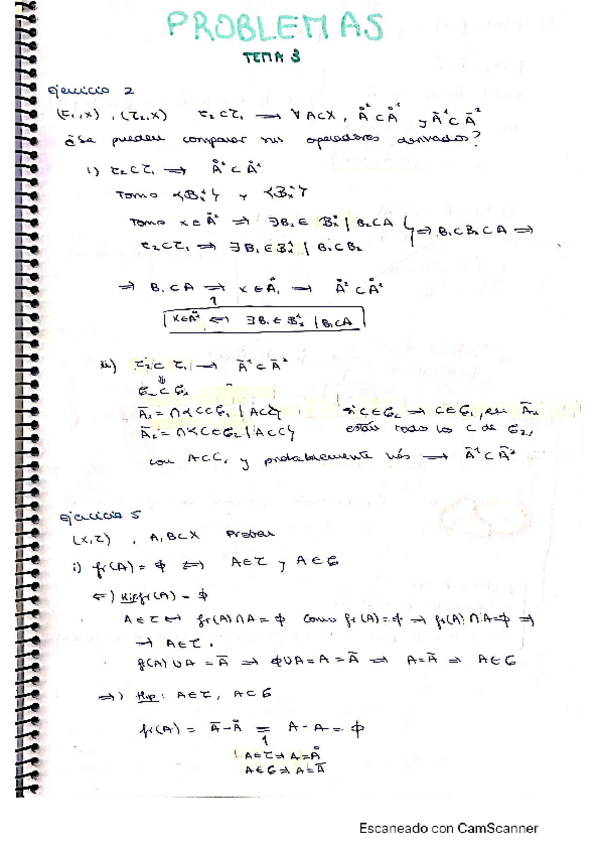 PROBLEMAS
TEMA 3
Ejercicio 2
(τ₁,X), (τ₂,X) τ₂⊂τ₁ → ∀A⊂X, Å² ⊂ Å¹ y Ā¹ ⊂ Ā²
¿Se pueden comparar sus operadores derivados?
i) τ₂⊂τ₁ → Å² ⊂ Å¹
Tomo {Bₓ¹} y {Bₓ²}
Tomo x∈Å² ⇒ ∃B₂∈ Bₓ² | B₂⊂A
τ₂⊂τ₁ ⇒ ∃B₁∈Bₓ¹ | B₁⊂B₂ } ⇒ B₁⊂B₂⊂A ⇒
⇒ B₁⊂A ⇒ x∈Å₁ → Å² ⊂ Å¹
1
x∈Å¹ ⇔ ∃B₁∈Bₓ¹ | B₁⊂A
ii) τ₂⊂τ₁ → Ā¹ ⊂ Ā²
⇓
G₂⊂G₁
Ā₁ = ∩{C∈G₁ | A⊂C} si C∈G₂ → C∈G₁, en Ā₁
Ā₂ = ∩{C∈G₂ | A⊂C} están todo los C de G₂,
con A⊂C, y probablemente más → Ā¹ ⊂ Ā²
Ejercicio 5
(X,τ), A,B⊂X Probar
i) fr(A) = ϕ ⇔ A∈τ y A∈G
⇐) Hip: fr(A) = ϕ
A∈τ ↔ fr(A)∩A = ϕ Como fr(A)=ϕ ⇒ fr(A)∩A=ϕ ⇒
→ A∈τ.
fr(A)∪A = Ā ⇒ ϕ∪A = A = Ā ⇒ A=Ā ⇒ A∈G
⇒) Hip: A∈τ, A∈G
fr(A) = Ā - Å = A - A = ϕ
1
1 A∈τ ⇒ A=Å
A∈G ⇒ A=Ā
Escaneado con CamScanner